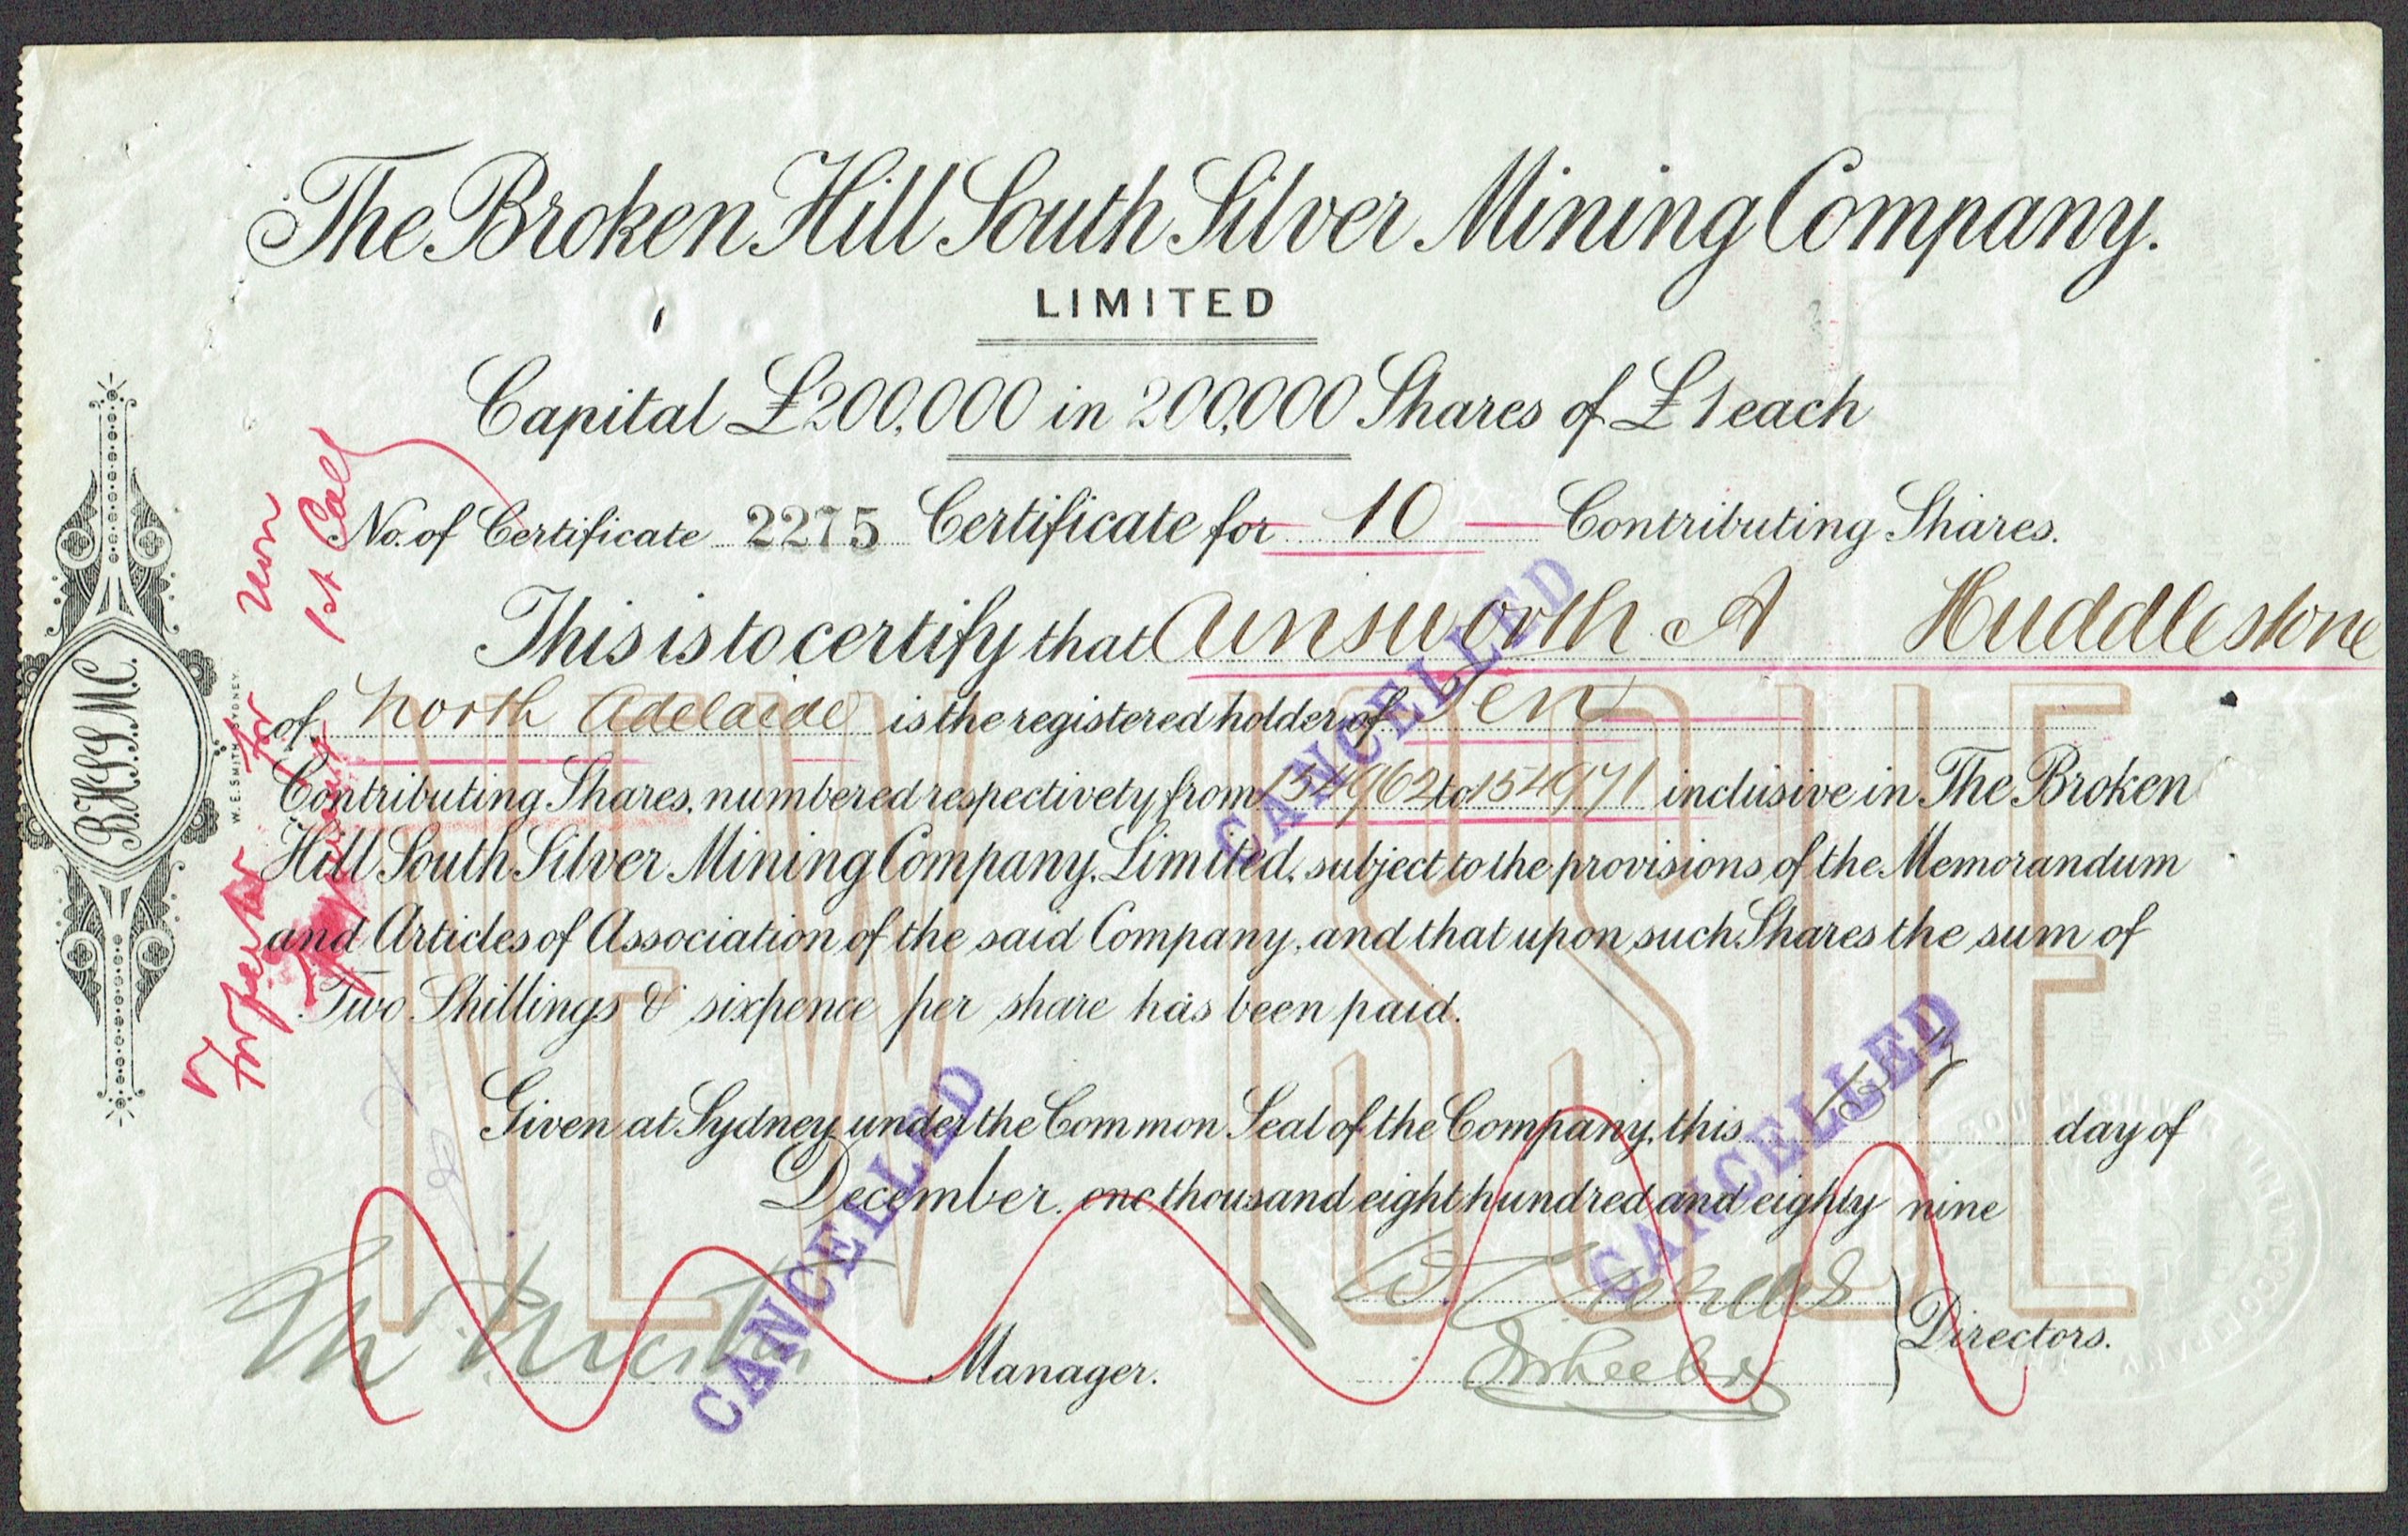 The Broken Hill South Silver Mining Company.
LIMITED
Capital £200,000 in 200,000 Shares of £1 each
No. of Certificate 2275 Certificate for 10 Contributing Shares.
This is to certify that Ainsworth A Huddlestone
of North Adelaide is the registered holder of Ten
Contributing Shares, numbered respectively from 154962 to 154971 inclusive in The Broken
Hill South Silver Mining Company, Limited, subject to the provisions of the Memorandum
and Articles of Association of the said Company, and that upon such Shares the sum of
Two Shillings & sixpence per share has been paid.
Given at Sydney under the Common Seal of the Company, this day of
December one thousand eight hundred and eighty nine
Manager.
Directors.
NEW ISSUE
CANCELLED
CANCELLED
CANCELLED
B.H.S.S.M.C.
W.E. SMITH SYDNEY
Forfeited for Non
1st Call